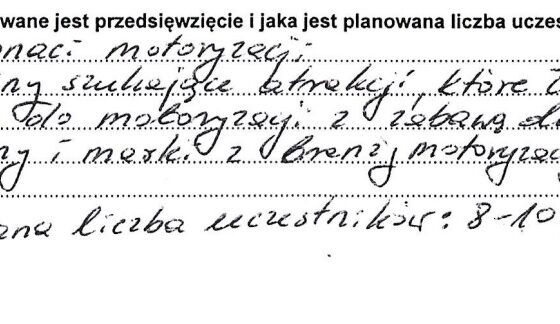 wane jest przedsięwzięcie i jaka jest planowana liczba uczes
naci motoryzacji:
ny szukające atrakcji, które
do motoryzacji z zabawą
ny i marki z branży motoryzac
ana liczba uczestników: 8-10